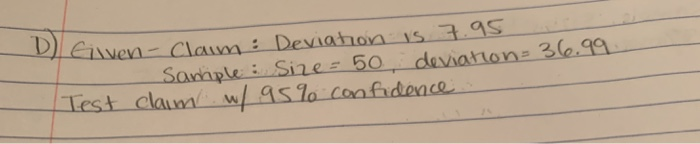 D) Given - Claim : Deviation is 7.95
Sample : Size = 50, deviation = 36.99
Test claim w/ 95% confidence